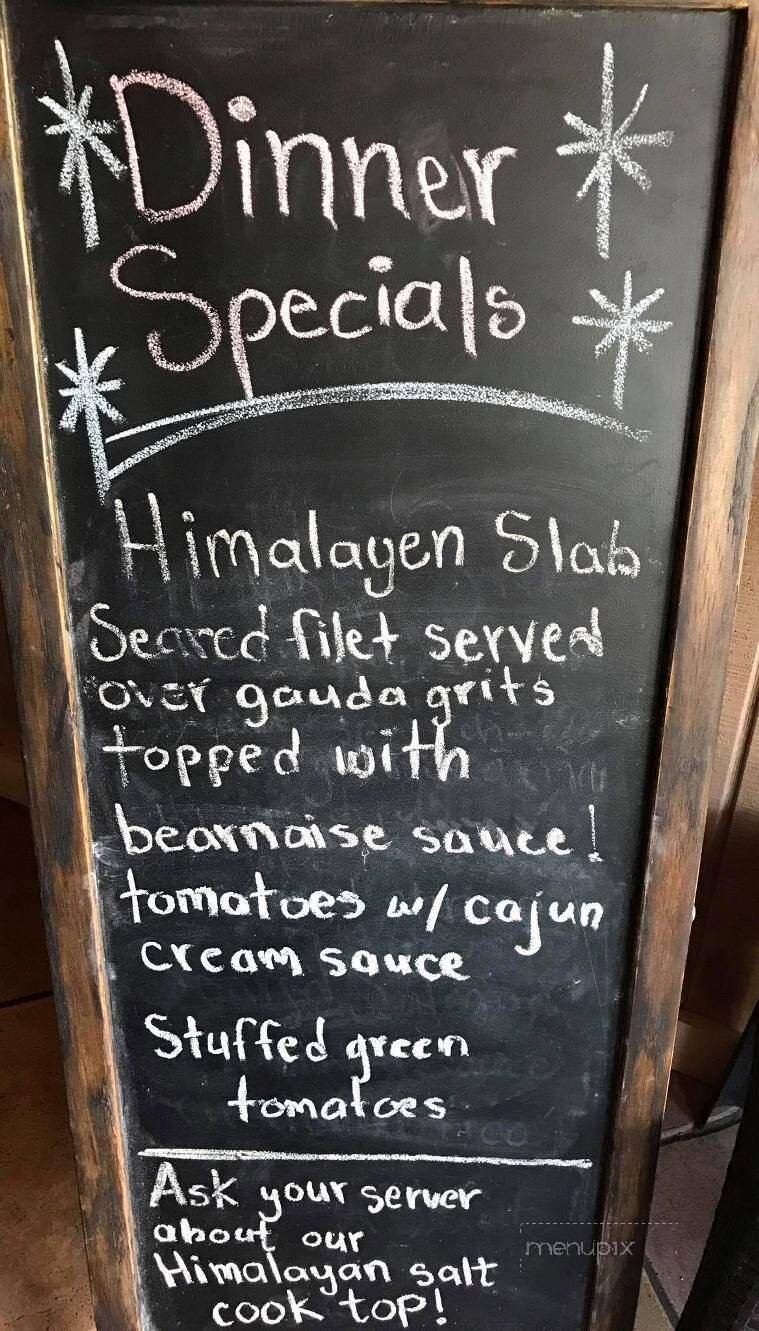 Dinner
Specials
Himalayen Slab
Seared filet served
over gauda grits
topped with
bearnaise sauce!
tomatoes w/ cajun
cream sauce
Stuffed green
tomatoes
Ask your server
about our
Himalayan salt
cook top!
menupix